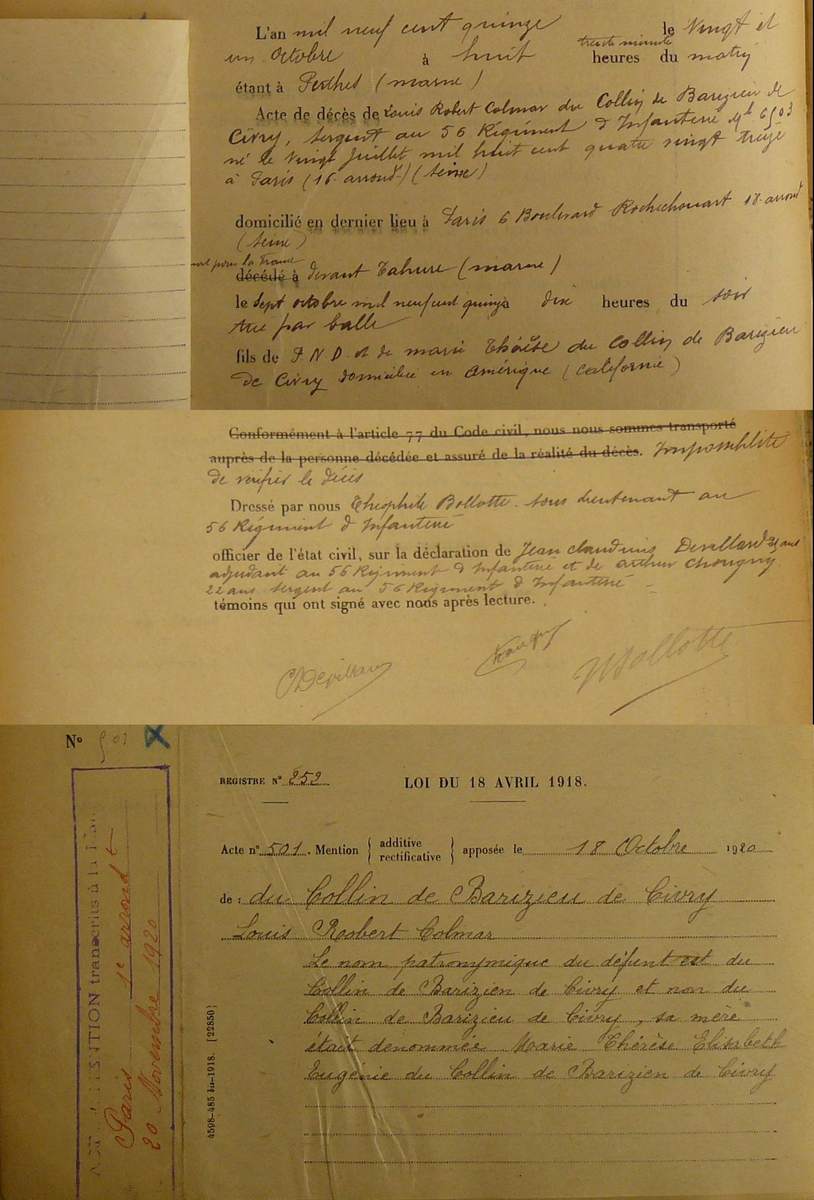 L'an mil neuf cent quinze le Vingt et
un octobre à huit heures trente minutes du matin
étant à Perthes (marne)
Acte de décès de Louis Robert Colmar du Collin de Barizien de
Civry, sergent au 56 Régiment d Infanterie Mle 6503
né le vingt juillet mil huit cent quatre vingt treize
à Paris (16 arrond.) (Seine)
domicilié en dernier lieu à Paris 6 Boulevard Rochechouart 18 arrond
(Seine)
mort pour la France
décédé à devant Tahure (marne)
le sept octobre mil neuf cent quinze à dix heures du soir
tué par balle
fils de P.N.D. et de marie Thérèse du Collin de Barizien
de Civry domiciliée en Amérique (Californie)
Conformément à l'article 77 du Code civil, nous nous sommes transporté
auprès de la personne décédée et assuré de la réalité du décès. Impossibilité
de vérifier le décès
Dressé par nous Théophile Bollotte sous lieutenant au
56 Régiment d Infanterie
officier de l'état civil, sur la déclaration de Jean Claudius Devillard ans
adjudant au 56 Régiment d Infanterie et de arthur Chougny
22 ans sergent au 56 Régiment d Infanterie
témoins qui ont signé avec nous après lecture.
Bollotte
N° 501
REGISTRE N° 252
LOI DU 18 AVRIL 1918.
Acte n° 501. Mention { additive rectificative } apposée le 18 Octobre 1920
de : du Collin de Barizieu de Civry
Louis Robert Colmar
Le nom patronymique du défunt est du
Collin de Barizien de Civry et non du
Collin de Barizieu de Civry, sa mère
était dénommée Marie Thérèse Elisabeth
Eugénie du Collin de Barizien de Civry
4598-485 Iu-1918. [22850]
MENTION transcrits à la
Paris 1e arrondt
20 Novembre 1920